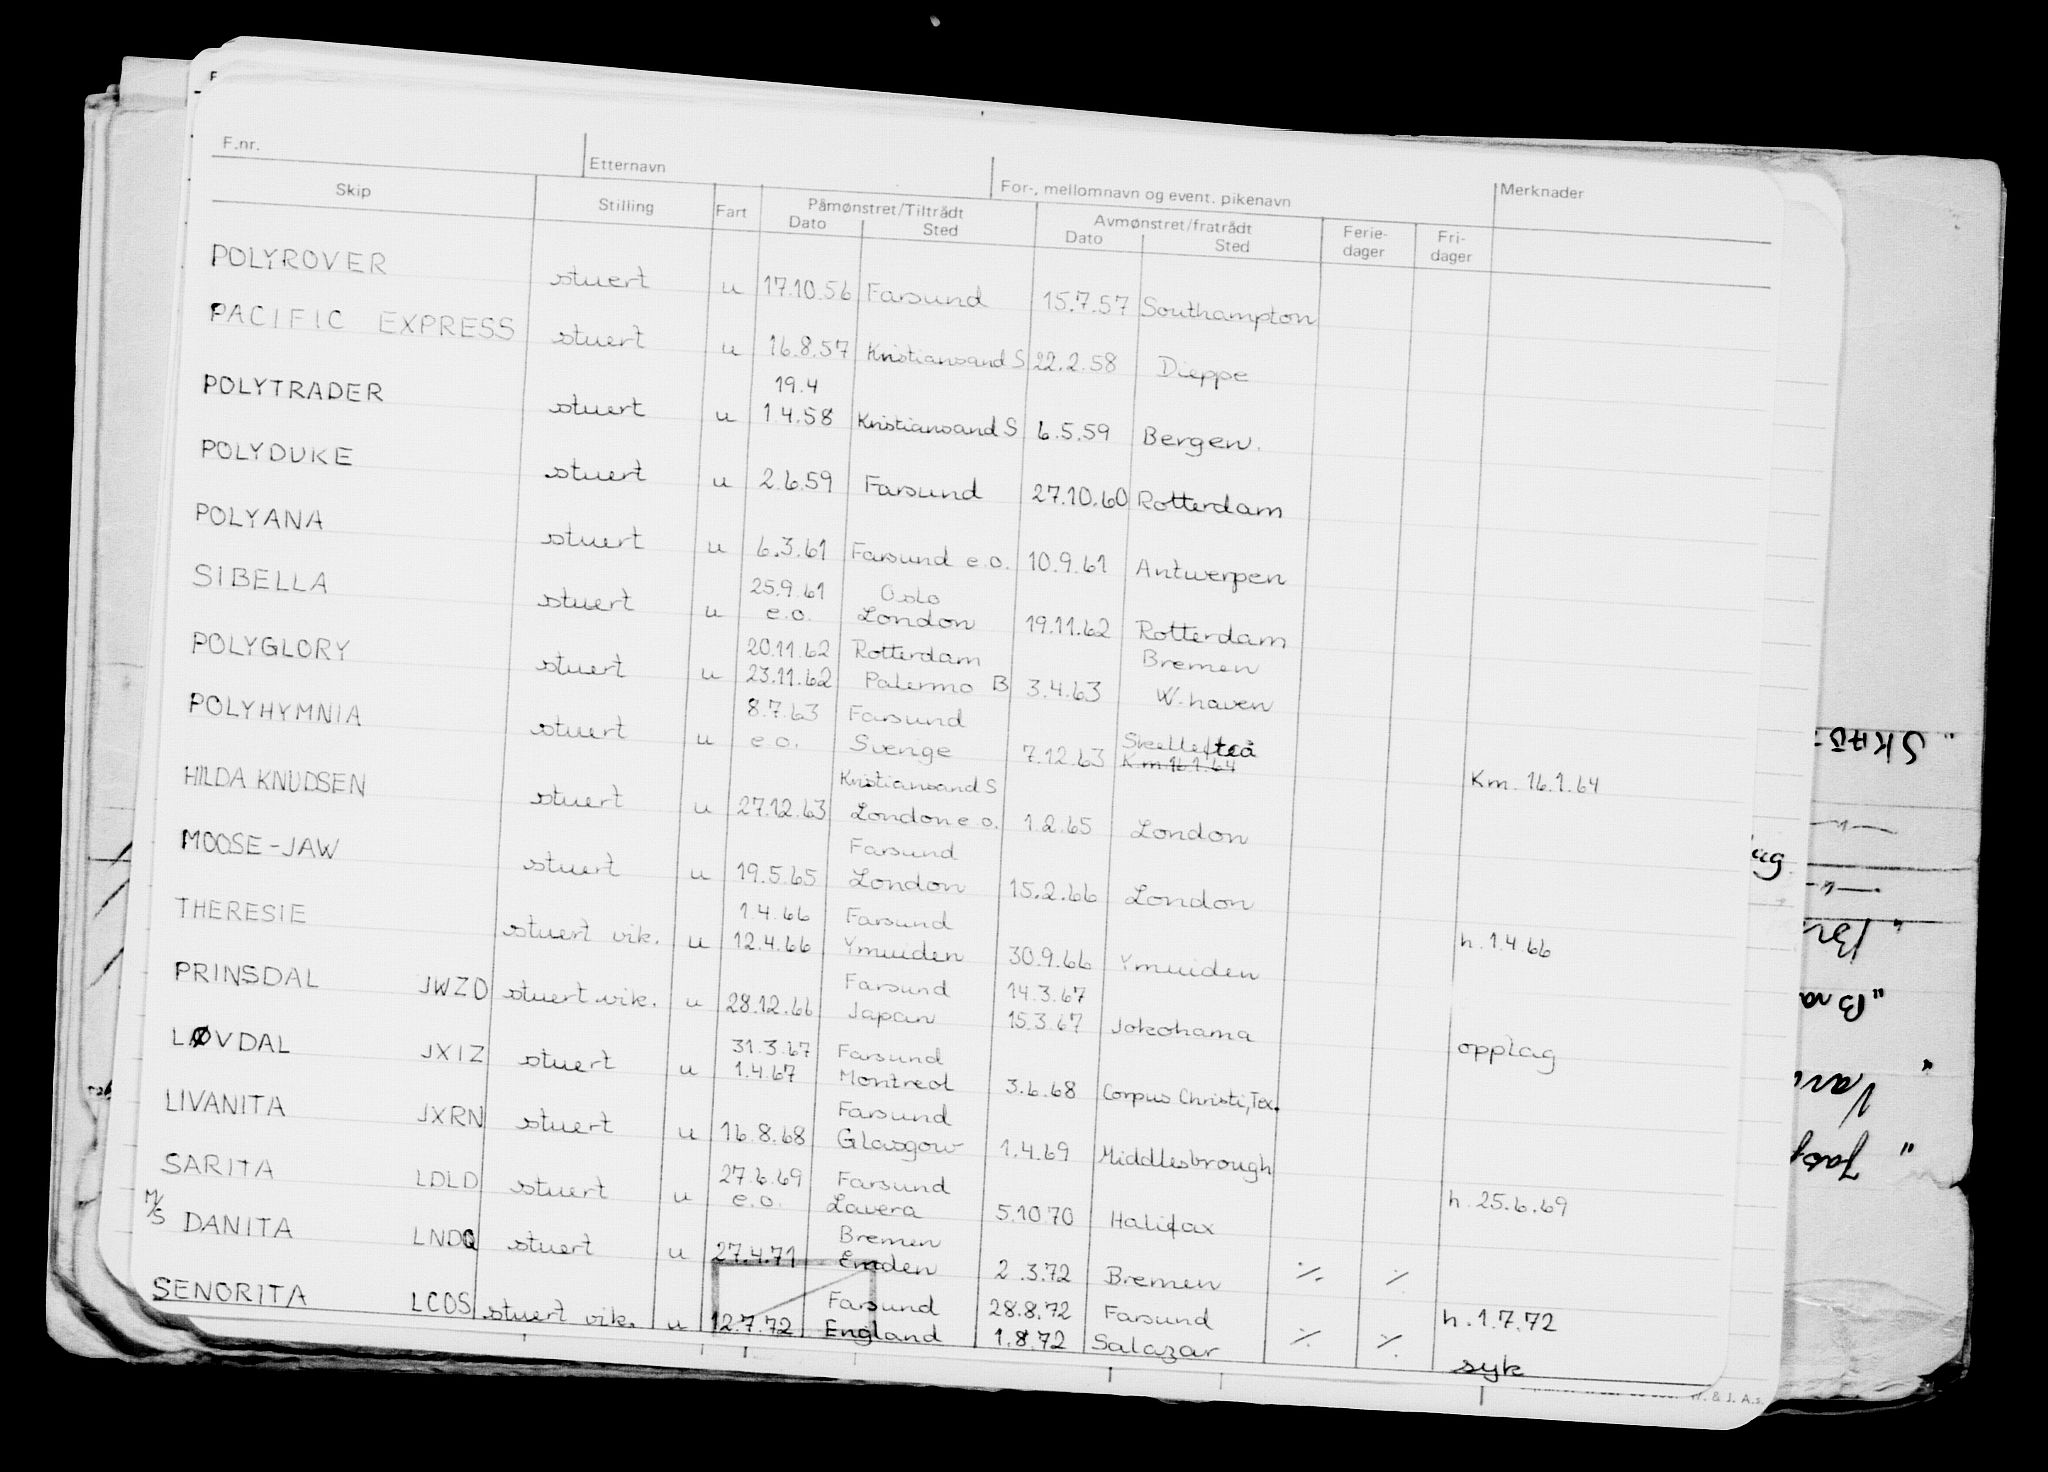 F.nr. Etternavn For-, mellomnavn og event. pikenavn Merknader
Skip Stilling Fart Påmønstret/Tiltrådt Dato Sted Avmønstret/fratrådt Dato Sted Ferie-dager Fri-dager
POLYROVER stuert u 17.10.56 Farsund 15.7.57 Southampton
PACIFIC EXPRESS stuert u 16.8.57 Kristiansand S 22.2.58 Dieppe
19.4
POLYTRADER stuert u 1.4.58 Kristiansand S 6.5.59 Bergen.
POLYDUKE stuert u 2.6.59 Farsund 27.10.60 Rotterdam
POLYANA stuert u 6.3.61 Farsund e.o. 10.9.61 Antwerpen
25.9.61 Oslo
SIBELLA stuert u e.o. London 19.11.62 Rotterdam
20.11.62 Rotterdam Bremen
POLYGLORY stuert u 23.11.62 Palermo B 3.4.63 W.haven
8.7.63 Farsund Skellefteå
POLYHYMNIA stuert u e.o. Sverige 7.12.63 Km 16.1.64 Km. 16.1.64
Kristiansand S
HILDA KNUDSEN stuert u 27.12.63 London e.o. 1.2.65 London
Farsund
MOOSE-JAW stuert u 19.5.65 London 15.2.66 London
1.4.66 Farsund
THERESIE stuert vik. u 12.4.66 Ymuiden 30.9.66 Ymuiden h. 1.4.66
Farsund 14.3.67
PRINSDAL JWZD stuert vik. u 28.12.66 Japan 15.3.67 Jokohama opplag
31.3.67 Farsund
LØVDAL JXIZ stuert u 1.4.67 Montreal 3.6.68 Corpus Christi, Tex.
Farsund
LIVANITA JXRN stuert u 16.8.68 Glasgow 1.4.69 Middlesbrough
27.6.69 Farsund
SARITA LDLD stuert u e.o. Lavera 5.10.70 Halifax h. 25.6.69
Bremen
M/S DANITA LNDQ stuert u 27.4.71 Emden 2.3.72 Bremen ⁒ ⁒
Farsund 28.8.72 Farsund h. 1.7.72
SENORITA LCOS stuert vik. u 12.7.72 England 1.8.72 Salazar ⁒ ⁒ syk